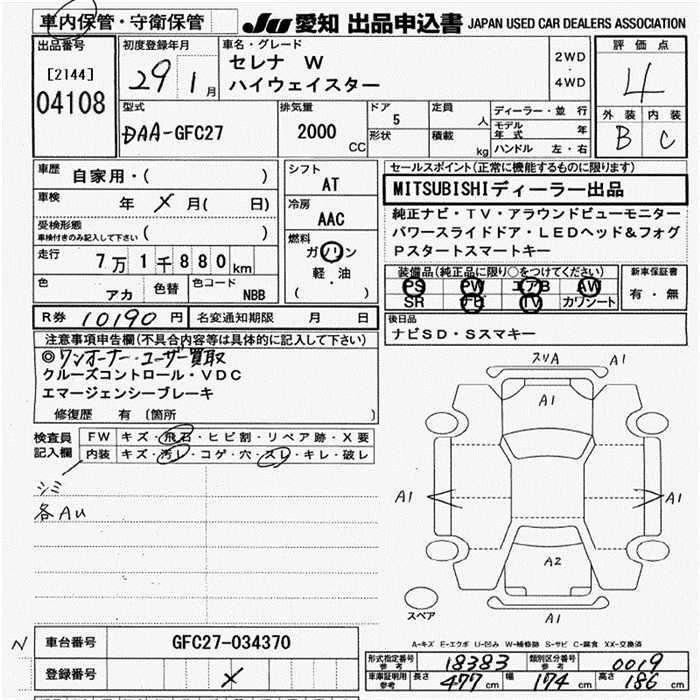 車内保管・守衛保管 JU 愛知 出品申込書 JAPAN USED CAR DEALERS ASSOCIATION
出品番号 初度登録年月 車名・グレード 評価点
[2144] 29 1月 セレナ W 2WD・4WD 4
04108 ハイウェイスター
外装 内装
B C
型式 排気量 ドア 定員 ディーラー・並行
DAA-GFC27 2000CC 5 人 モデル年式 年
形状 積載 kg ハンドル 左・右
車歴 自家用・( ) シフト AT
セールスポイント(正常に機能するものに限ります)
MITSUBISHIディーラー出品
車検 年 X 月( 日) 冷房 AAC
純正ナビ・TV・アラウンドビューモニター
受検形態 車検付きのみ記入して下さい ( )
パワースライドドア・LEDヘッド&フォグ
走行 7万1千880km 燃料 ガソリン 軽・油 ( )
Pスタートスマートキー
装備品(純正品に限り○をつけてください) 新車保証書
PS PW エアB AW 有・無
SR ナビ TV カワシート
色 アカ 色替 色コード NBB
R券 10190円 名変通知期限 月 日
後日品
ナビSD・Sスマキー
注意事項申告欄(不具合内容等は具体的に記入して下さい)
◎ワンオーナー・ユーザー買取
クルーズコントロール・VDC
エマージェンシーブレーキ
修復歴 有 〔箇所 〕
検査員記入欄 FW キズ・飛石・ヒビ割・リペア跡・X要
内装 キズ・汚レ・コゲ・穴・スレ・キレ・破レ
シミ
各AU
スリA A1
A1
A1 A1
A2
スペア A1
A-キズ E-エクボ U-凹み W-補修跡 S-サビ C-腐食 XX-交換済
N 車台番号 GFC27-034370
登録番号 X
形式指定番号 参考 18383 類別区分番号 参考 0019
車庫証明用 参考 長さ 477cm 幅 174cm 高さ 186cm